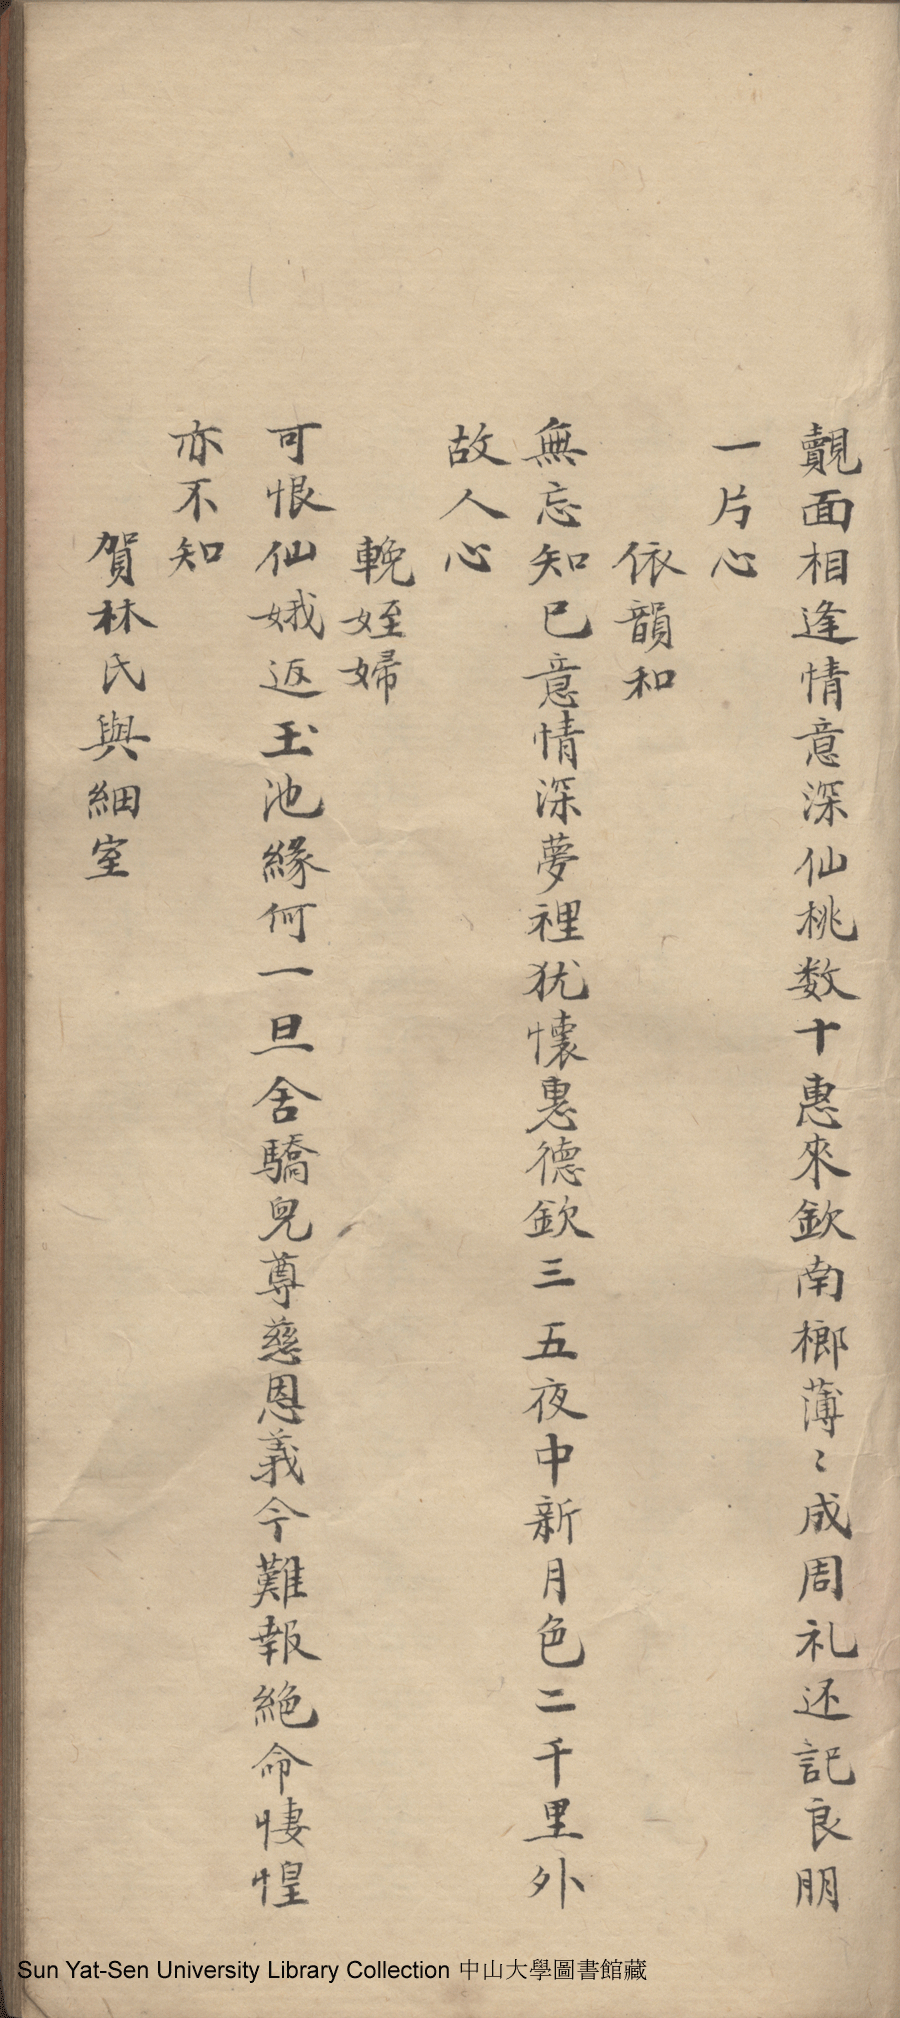 覿面相逢情意深仙桃数十惠來欽南榔薄〻成周礼还記良朋
一片心
依韻和
無忘知已意情深夢裡犹懷惠德欽三五夜中新月色二千里外
故人心
輓姪婦
可恨仙娥返玉池緣何一旦舍驕兒尊慈恩義今難報絕命悽惶
亦不知
賀林氏與細室
Sun Yat-Sen University Library Collection 中山大學圖書館藏